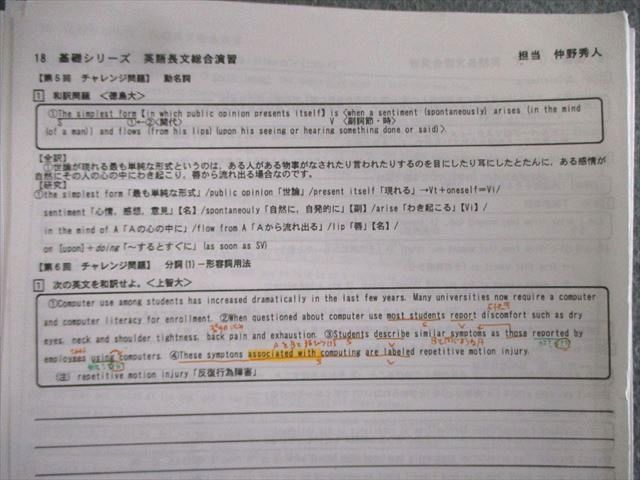 18 基礎シリーズ 英語長文総合演習
担当 仲野秀人
【第5回 チャレンジ問題】 動名詞
1 和訳問題 <徳島大>
①The simplest form 【in which public opinion presents itself】 is <when a sentiment (spontaneously) arises (in the mind
S ①←②<関代> V <副詞節・時>
(of a man)) and flows (from his lips) (upon his seeing or hearing something done or said)>
【全訳】
①世論が現れる最も単純な形式というのは，ある人がある物事がなされたり言われたりするのを目にしたり耳にしたとたんに，ある感情が
自然にその人の心の中にわき起こり，唇から流れ出る場合なのです。
【研究】
①the simplest form「最も単純な形式」/public opinion「世論」/present itself「現れる」→Vt＋oneself＝Vi/
sentiment「心情，感想，意見」【名】/spontaneouly「自然に，自発的に」【副】/arise「わき起こる」【Vi】/
in the mind of A「Aの心の中に」/flow from A「Aから流れ出る」/lip「唇」【名】/
on [upon]＋doing「～するとすぐに」(as soon as SV)
【第6回 チャレンジ問題】 分詞(1)－形容詞用法
1 次の英文を和訳せよ。<上智大>
①Computer use among students has increased dramatically in the last few years. Many universities now require a computer
and computer literacy for enrollment. ②When questioned about computer use most students report discomfort such as dry
S V
eyes, neck and shoulder tightness, back pain and exhaustion. ③Students describe similar symptoms as those reported by
S V
employees using computers. ④These symptons associated with computing are labeled repetitive motion injury.
S V
(注) repetitive motion injury「反復行為障害」